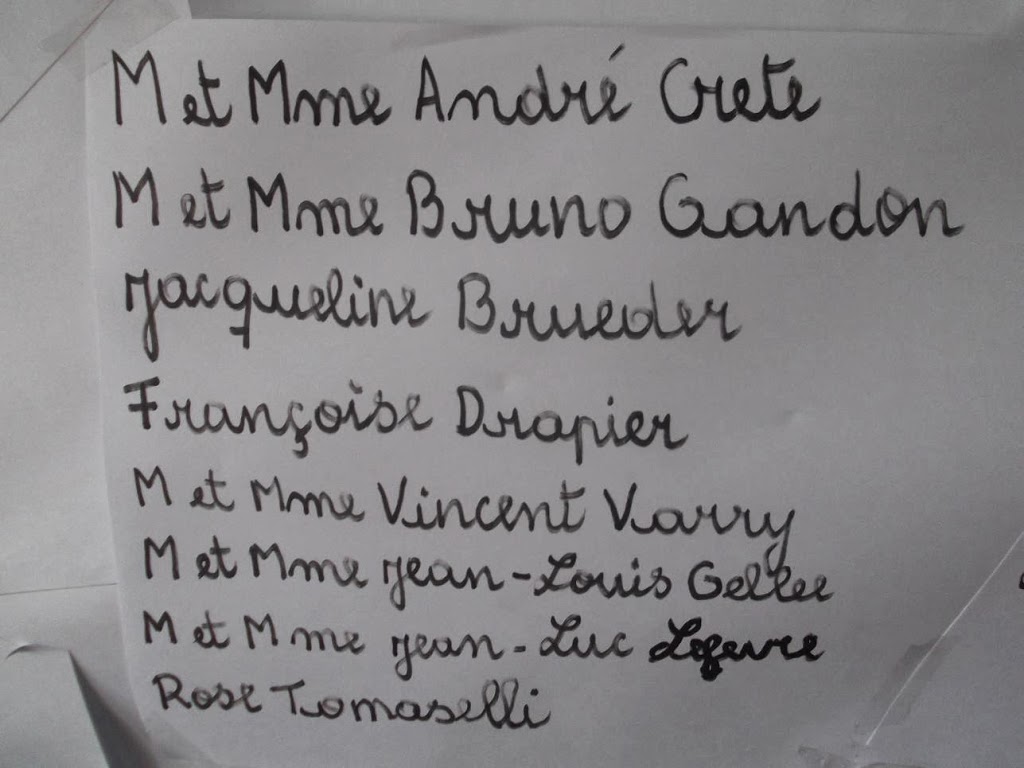 M et Mme André Crete
M et Mme Bruno Gandon
Jacqueline Brueder
Françoise Drapier
M et Mme Vincent Varry
M et Mme Jean-Louis Gellee
M et Mme Jean-Luc Lefevre
Rose Tomaselli